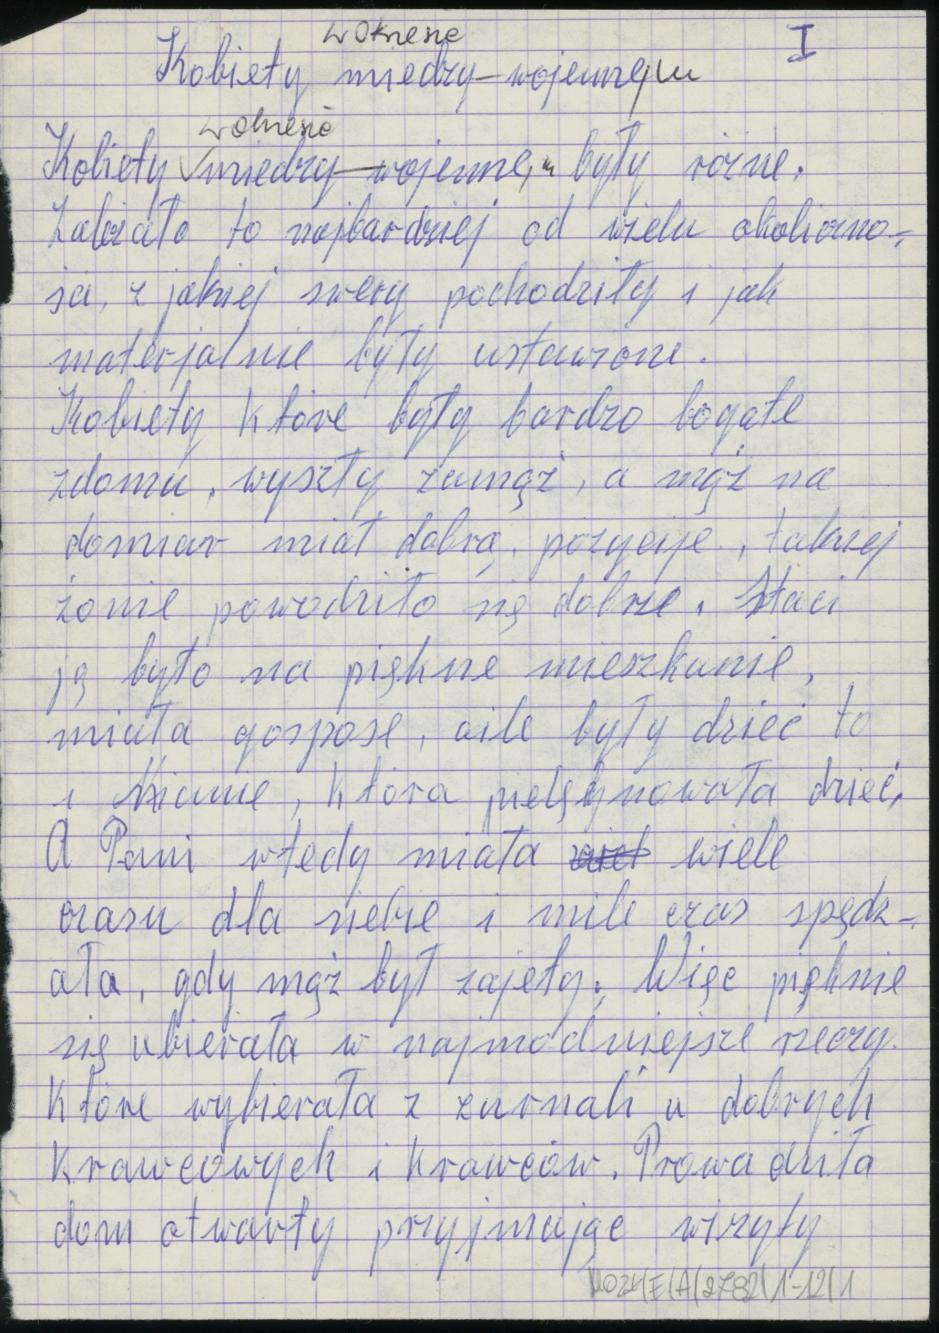 I
w okresie
Kobiety miedzy-wojennym
w okresie
Kobiety miedzy-wojenne, były różne.
Zależało to najbardziej od wielu okoliczno-
ści, z jakiej swery pochodziły i jak
materjalnie były ustawione.
Kobiety które były bardzo bogate
zdomu, wyszły zamąż, a mąż na
domiar miał dobrą, pozycije, takiej
żonie powodziło się dobrze. Stać
ją było na piękne mieszkanie,
miała gospose, aile były dzieć to
i Nianie, która pielęgnowała dzieć,
A Pani wtedy miała wiele
czasu dla siebie i mile czas spędz-
ała, gdy mąż był zajęty. Więc pięknie
się ubierała w najmodniejsze rzeczy.
Które wybierała z żurnali u dobrych
Krawcowych i Krawców. Prowadziła
dom otwarty przyjmając wizyty
/E/A/2782/1-12/1